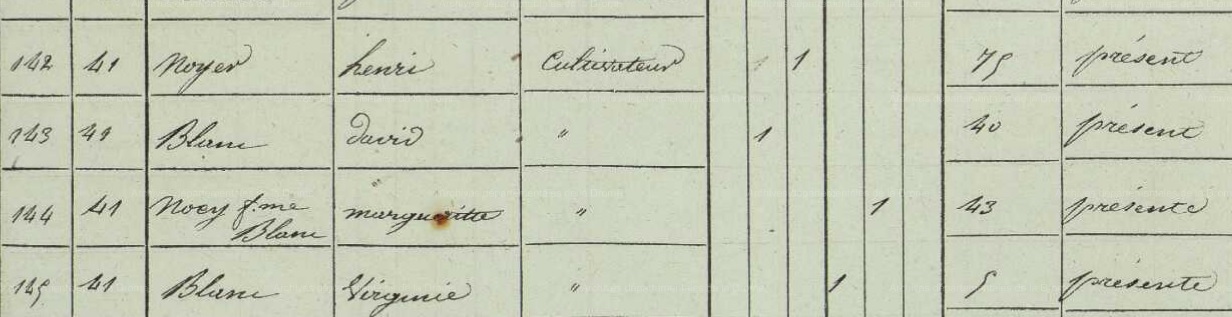 142 41 Noyer henri Cultivateur 1 1 75 présent
143 41 Blanc david " 1 40 présent
144 41 Noey f.me Blanc margueritte " 1 43 présente
145 41 Blanc Virginie " 1 5 présente